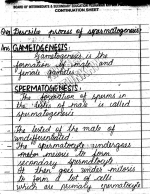 BOARD OF INTERMEDIATE & SECONDARY EDUCATION
CONTINUATION SHEET
Que: Describe process of spermatogenesis
Ans: GAMETOGENESIS:
Gametogenesis is the
formation of male and
female gametes
SPERMATOGENESIS:
The formation of sperms in
the testes of male is called
spermatogenesis
The testes of the male of
undifferentiated
The spermatocyte undergoes
meiosis to form
secondary spermatocyte
It then goes under mitosis
to form a lot of cells
which are primary spermatocyte